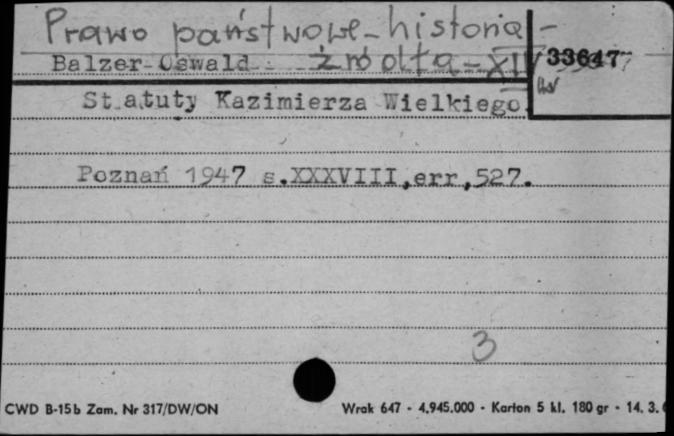 Prawo państwowe - historia -
Balzer Oswald źródła - XIV 33647
Statuty Kazimierza Wielkiego.
Poznań 1947 s.XXXVIII,err,527.
3
CWD B-15b Zam. Nr 317/DW/ON Wrak 647 - 4.945.000 - Karton 5 kl. 180 gr - 14. 3.